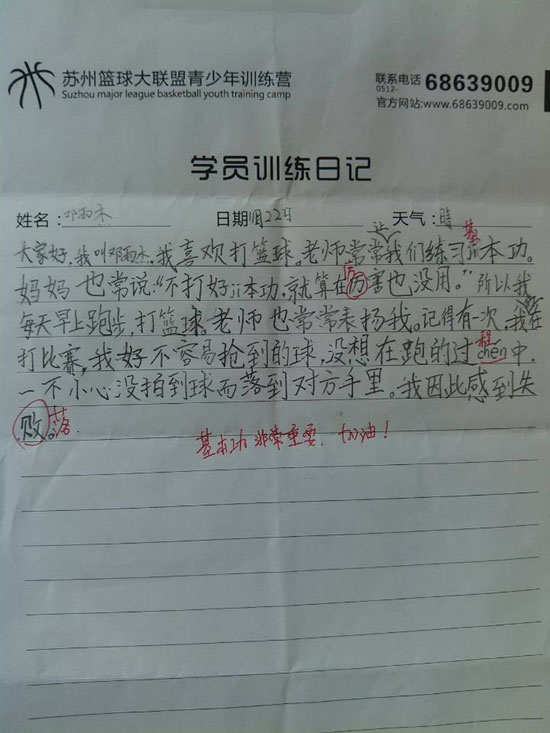 苏州篮球大联盟青少年训练营
Suzhou major league basketball youth training camp
联系电话 0512- 68639009
官方网站:www.68639009.com
学员训练日记
姓名: 邓雨杰 日期 1月22日 天气: 晴
让 基
大家好,我叫邓雨杰,我喜欢打篮球。老师常常我们练习ji本功。
厉
妈妈也常说:“不打好ji本功,就算在历害也没用。”所以我
每天早上跑步,打篮球,老师也常常表扬我。记得有一次,我在
程
打比赛,我好不容易抢到的球,没想在跑的过chen中,
一不小心没拍到球而落到对方手里。我因此感到失
败。落
基本功非常重要,加油!